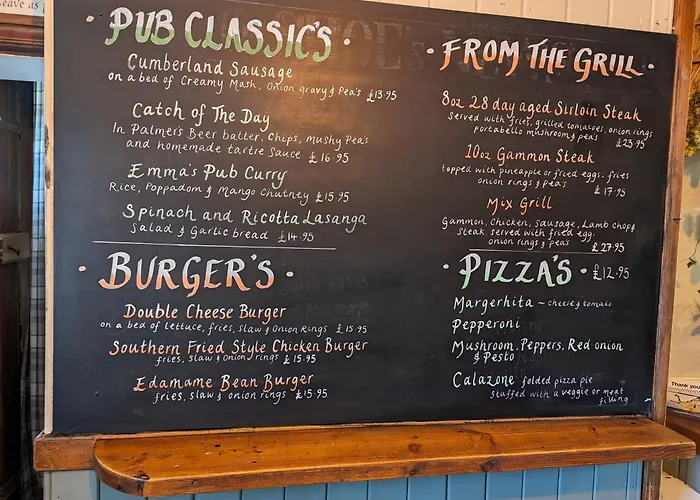 eave as
· PUB CLASSIC'S ·
Cumberland Sausage
on a bed of Creamy Mash, Onion gravy & Pea's £13.95
Catch of The Day
In Palmers Beer batter, Chips, mushy Pea's
and homemade tartre sauce £16.95
Emma's Pub Curry
Rice, Poppadom & Mango Chutney £15.95
Spinach and Ricotta Lasanga
Salad & Garlic bread £14.95
· BURGER'S ·
Double Cheese Burger
on a bed of lettuce, fries, slaw & Onion Rings £15.95
Southern Fried Style Chicken Burger
fries, slaw & onion rings £15.95
Edamame Bean Burger
fries, slaw & onion rings £15.95
· FROM THE GRILL ·
8oz 28 day aged Sirloin Steak
served with fries, grilled tomatoes, onion rings
portabello mushroom & pea's £23.95
10oz Gammon Steak
topped with pineapple or fried eggs. fries
onion rings & pea's £17.95
Mix Grill
Gammon, Chicken, Sausage, Lamb chop &
steak. served with fried egg.
onion rings & pea's £27.95
· PIZZA'S · £12.95
Margerhita – cheese & tomato
Pepperoni
Mushroom, Peppers, Red onion
& Pesto
Calazone folded pizza pie
stuffed with a veggie or meat
filling
Thank you